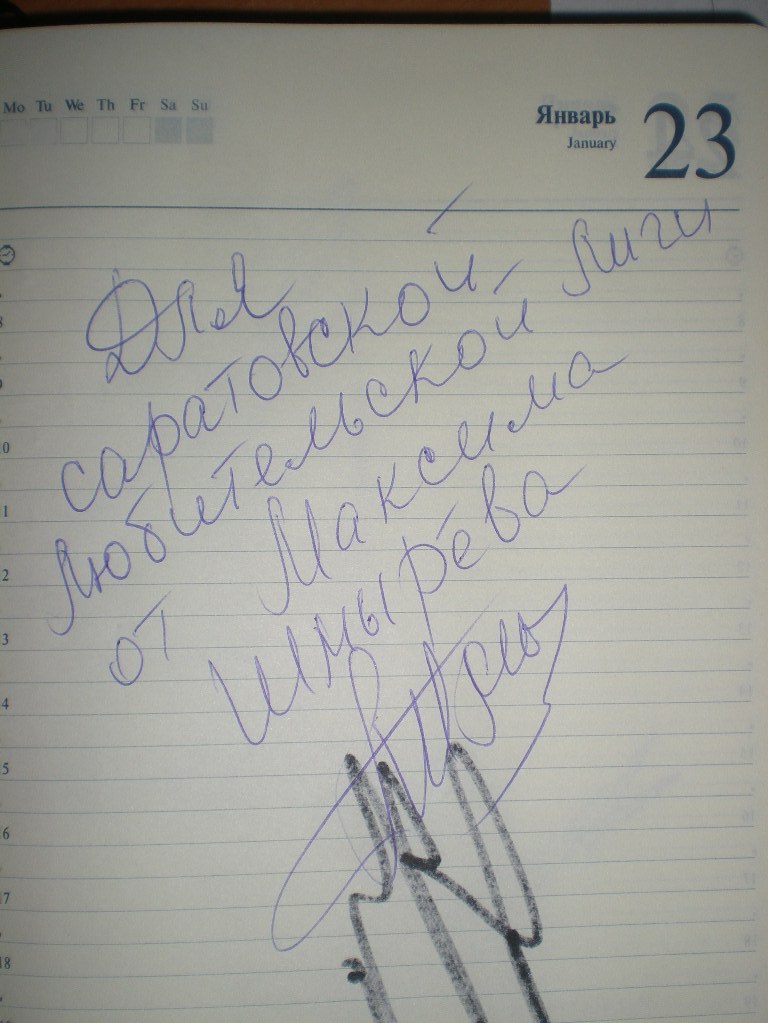 Mo Tu We Th Fr Sa Su
Январь
January
23
Для
саратовской
любительской лиги
от Максима
Шмырёва
8
9
10
11
12
13
14
15
16
17
18